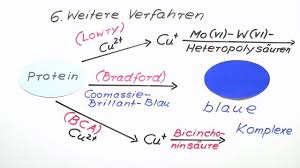 6. Weitere Verfahren
(LOWRY)
Cu2+
Cu+
Mo(VI)-W(VI)-
Heteropolysäuren
Protein
(Bradford)
Coomassie-
Brillant-Blau
blaue
Komplexe
(BCA)
Cu2+
Cu+
Bicincho-
ninsäure